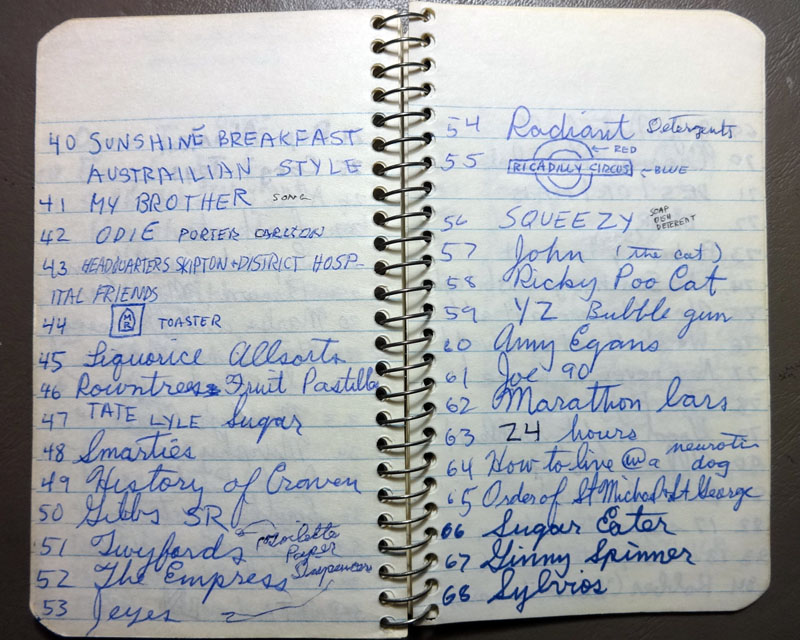 40 SUNSHINE BREAKFAST
AUSTRAILIAN STYLE
41 MY BROTHER SONG
42 ODIE PORTER CARLSON
43 HEADQUARTERS SKIPTON + DISTRICT HOSP-
ITAL FRIENDS
44 TOASTER
45 Liquorice Allsorts
46 Rowntrees Fruit Pastille
47 TATE LYLE Sugar
48 Smarties
49 History of Craven
50 Gibbs SR
51 Twyfords Toilette
Paper
52 The Empress
53 Jeyes
54 Radiant Detergents
← RED
55 PICADILLY CIRCUS ← BLUE
56 SQUEEZY SOAP
DISH
DETERENT
57 John (the cat)
58 Ricky Poo Cat
59 YZ Bubble gum
60 Amy Egans
61 Joe 90
62 Marathon bars
63 24 hours
64 How to live @ a neurotic
dog
65 Order of St Michael + St George
66 Sugar Eater
67 Ginny Spinner
68 Sylvios